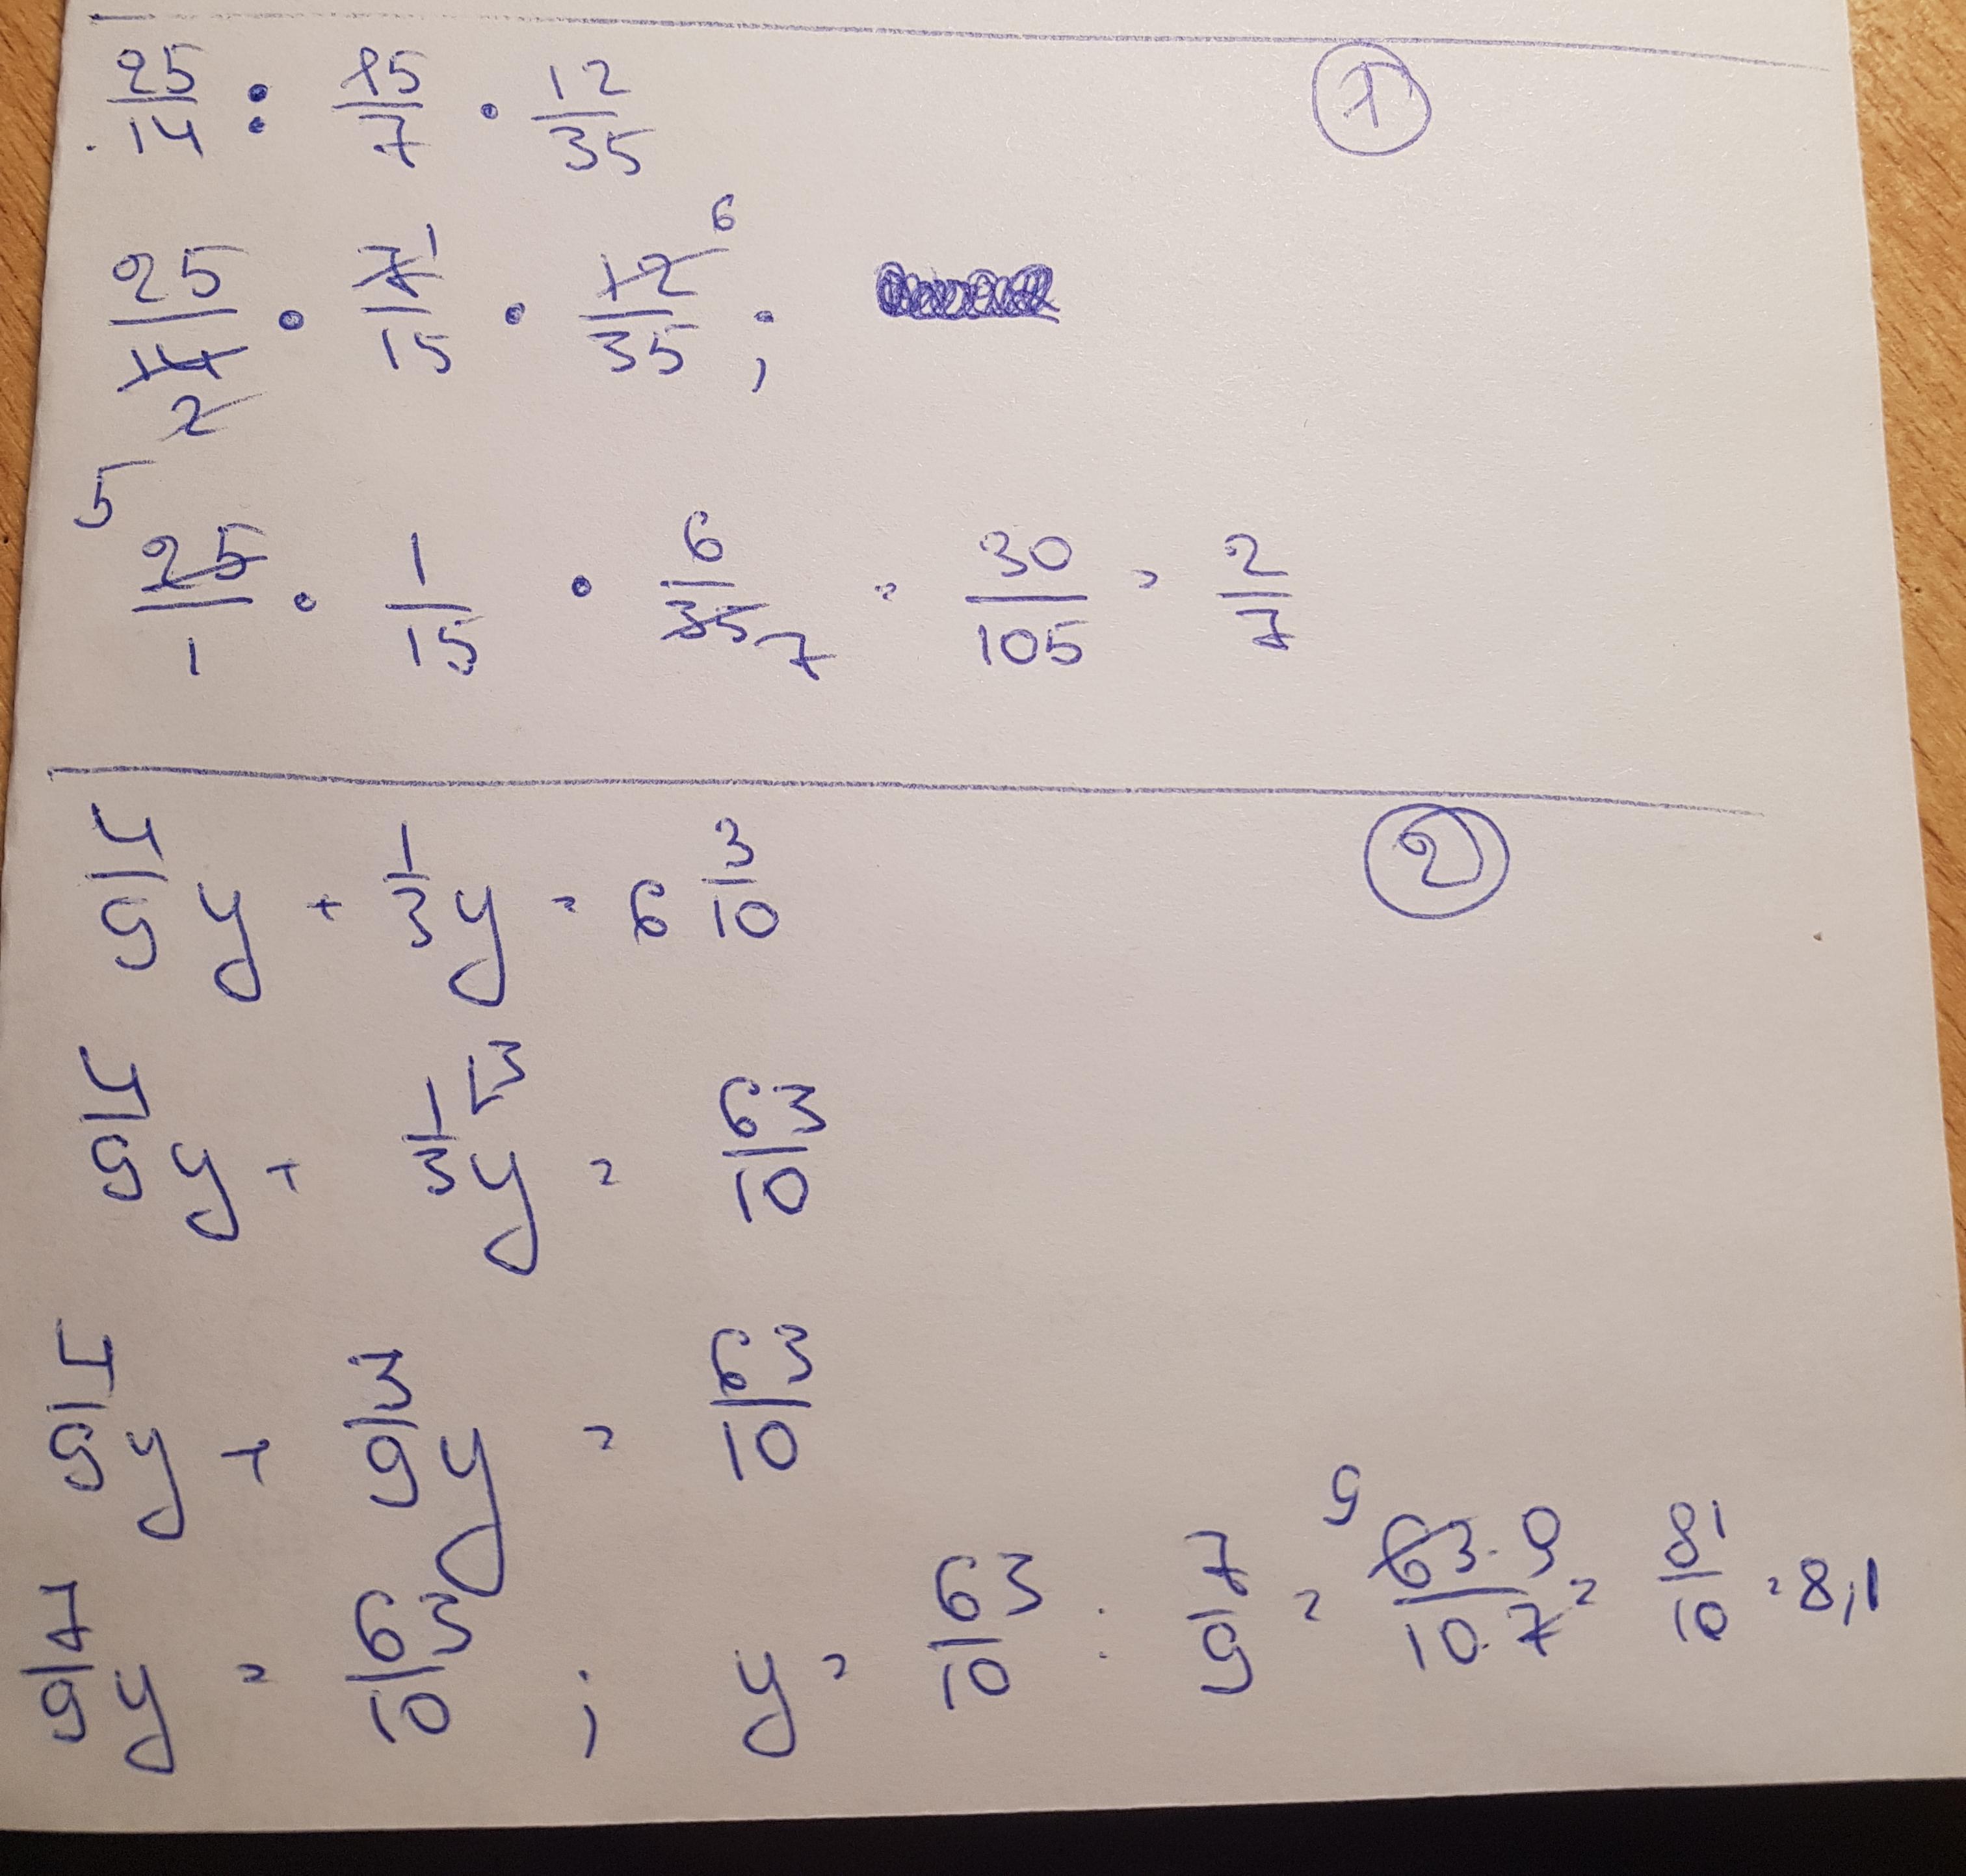 25/14 : 15/7 · 12/35 ①
25/14 2 · 7/15 1 · 12/35 6 ;
5 25/1 · 1/15 · 6/35 7 = 30/105 = 2/7
4/9 y + 1/3 y = 6 3/10 ②
4/9 y + 1/3 3 y = 63/10
4/9 y + 3/9 y = 63/10
7/9 y = 63/10 ; y = 63/10 : 7/9 = 9 63·9/10·7 = 81/10 = 8,1